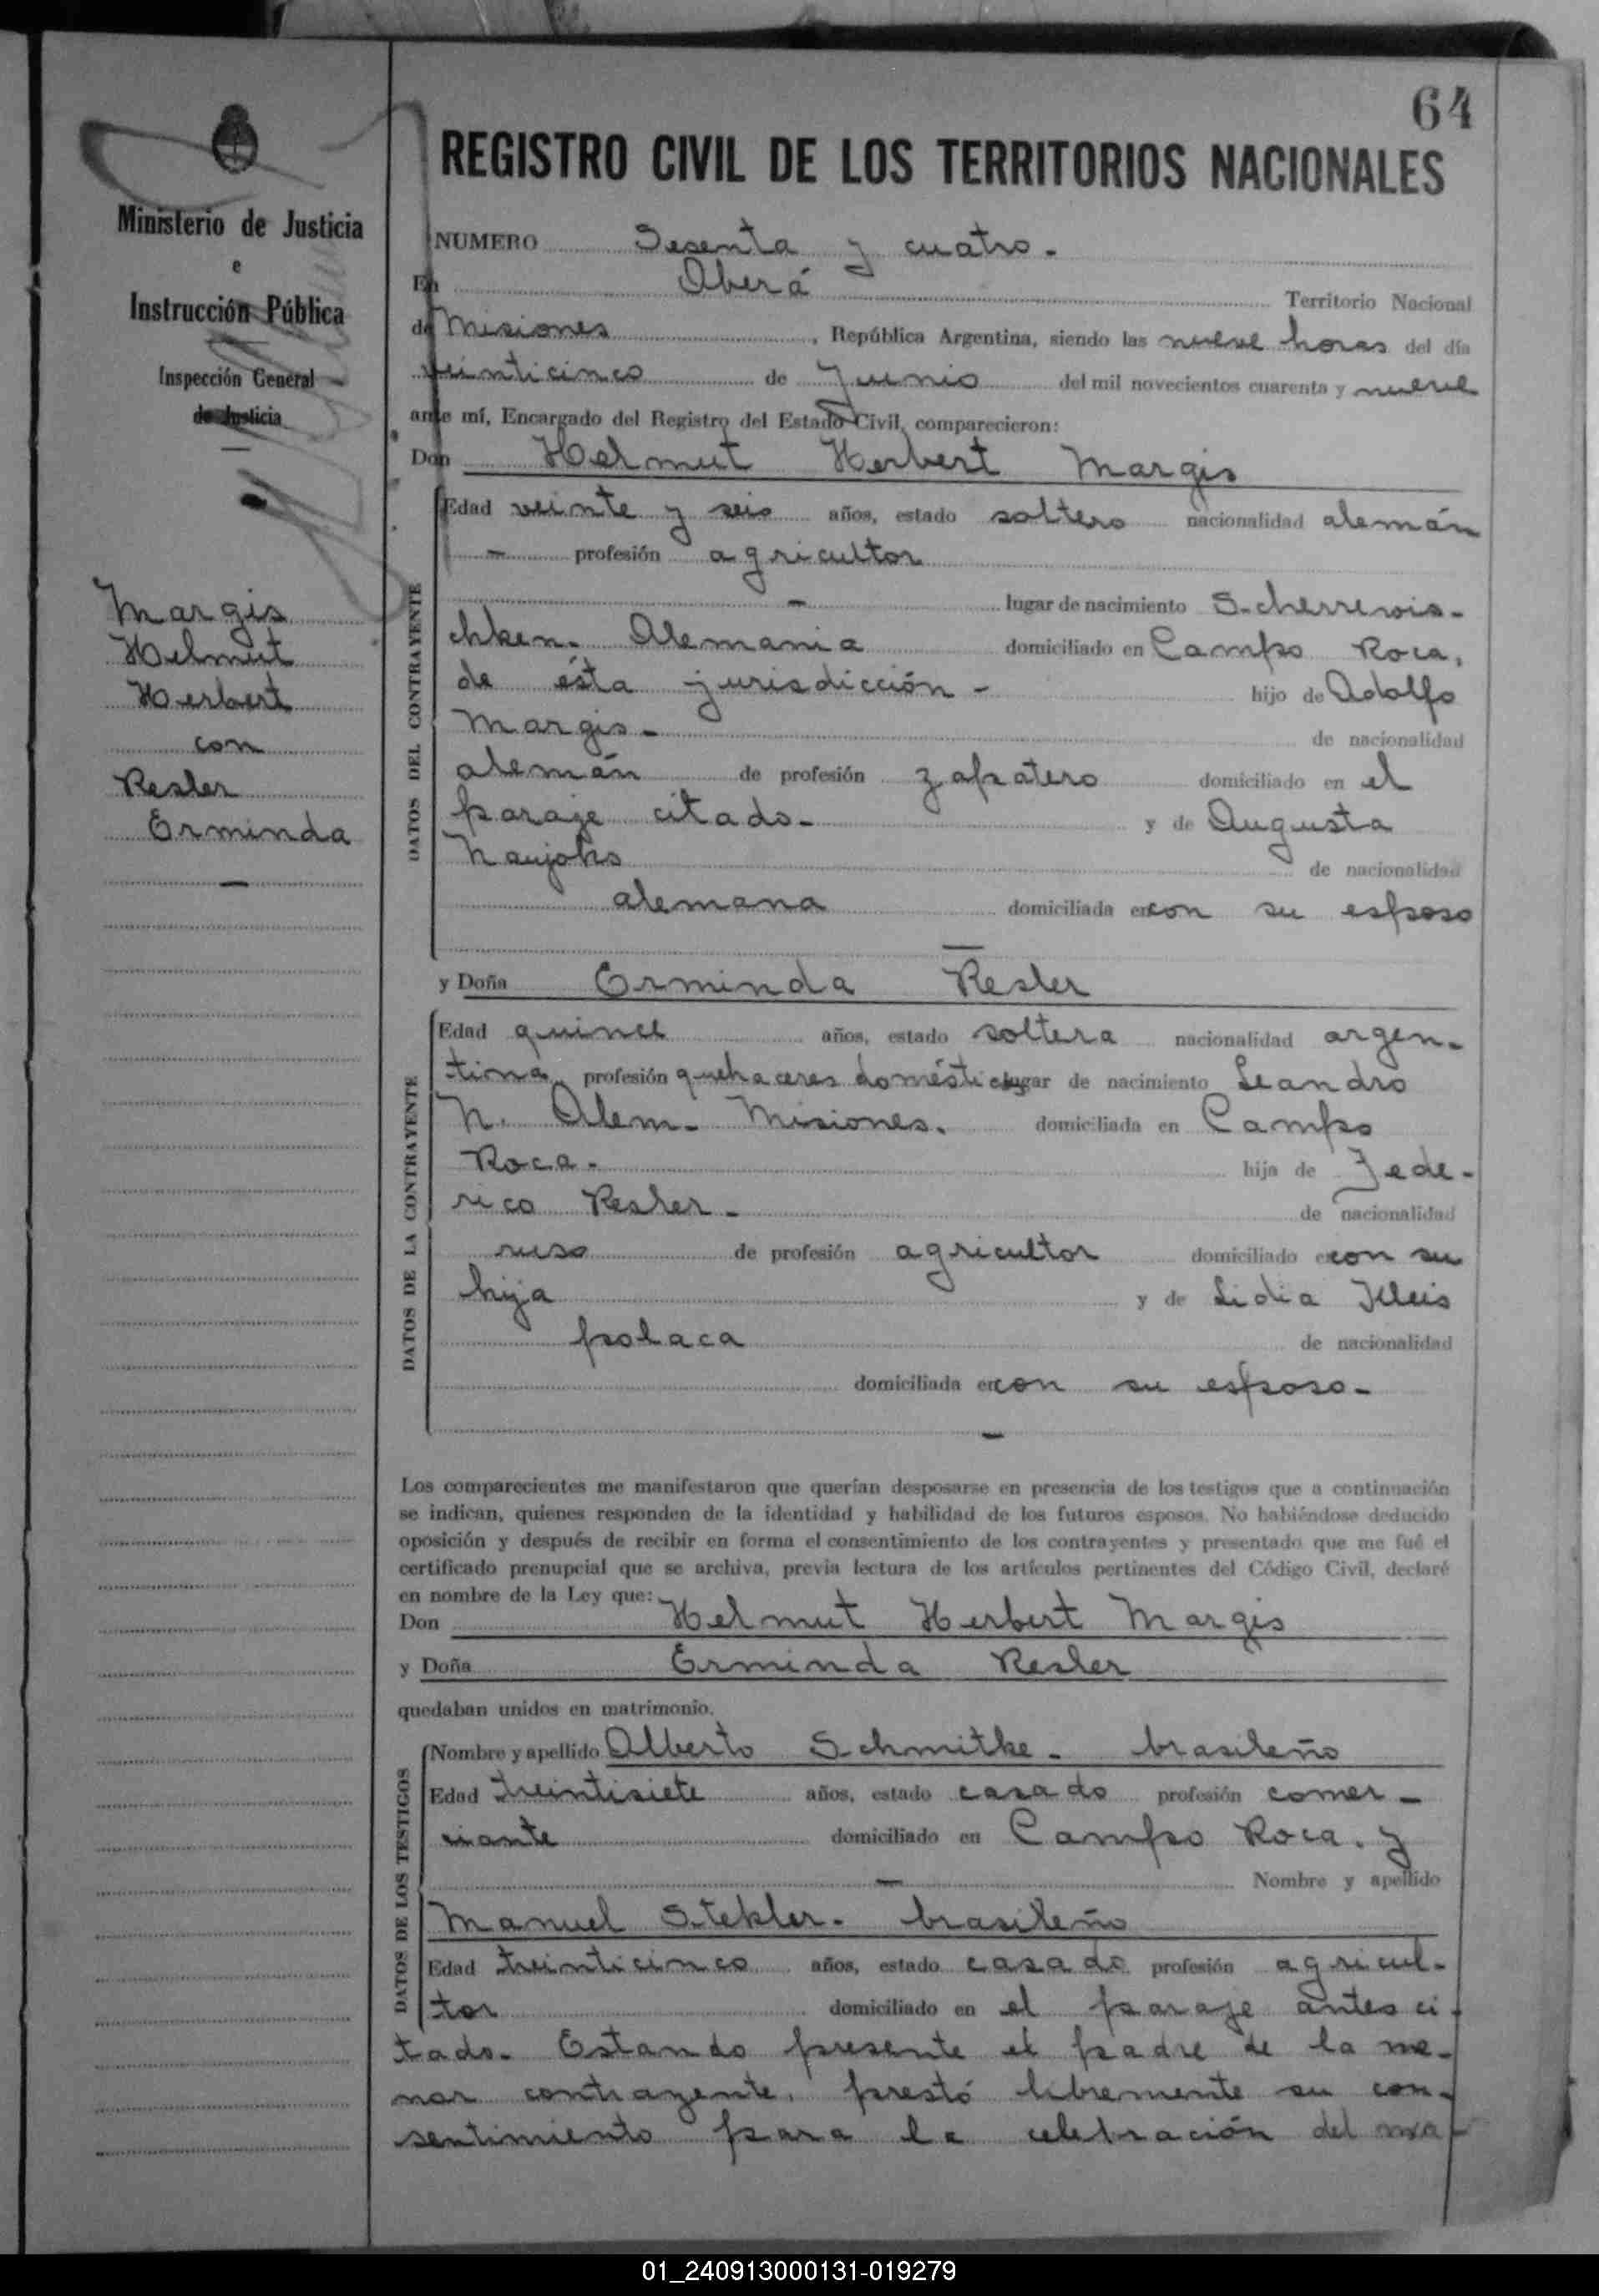 64
REGISTRO CIVIL DE LOS TERRITORIOS NACIONALES
Ministerio de Justicia
e
Instrucción Pública
Inspección General
de Justicia
Margis
Helmut
Herbert
con
Resler
Erminda
NUMERO Sesenta y cuatro.
En Oberá Territorio Nacional
de Misiones, República Argentina, siendo las nueve horas del día
veinticinco de Junio del mil novecientos cuarenta y nueve
ante mí, Encargado del Registro del Estado Civil, comparecieron:
Don Helmut Herbert Margis
DATOS DEL CONTRAYENTE
Edad veinte y seis años, estado soltero nacionalidad alemán
- profesión agricultor
- lugar de nacimiento Scherrewis-
chken. Alemania domiciliado en Campo Roca,
de ésta jurisdicción - hijo de Adolfo
Margis - de nacionalidad
alemán de profesión zapatero domiciliado en el
paraje citado - y de Augusta
Naujoks de nacionalidad
alemana domiciliada en con su esposo
y Doña Erminda Resler
DATOS DE LA CONTRAYENTE
Edad quince años, estado soltera nacionalidad argen-
tina profesión quehaceres doméstic lugar de nacimiento Leandro
N. Alem - Misiones. domiciliada en Campo
Roca - hija de Fede-
rico Resler - de nacionalidad
ruso de profesión agricultor domiciliado en con su
hija y de Lidia
polaca de nacionalidad
domiciliada en con su esposo -
Los comparecientes me manifestaron que querían desposarse en presencia de los testigos que a continuación
se indican, quienes responden de la identidad y habilidad de los futuros esposos. No habiéndose deducido
oposición y después de recibir en forma el consentimiento de los contrayentes y presentado que me fué el
certificado prenupcial que se archiva, previa lectura de los artículos pertinentes del Código Civil, declaré
en nombre de la Ley que:
Don Helmut Herbert Margis
y Doña Erminda Resler
quedaban unidos en matrimonio.
DATOS DE LOS TESTIGOS
Nombre y apellido Alberto Schmitke - brasileño
Edad treintisiete años, estado casado profesión comer-
ciante domiciliado en Campo Roca. y
- Nombre y apellido
Manuel Stekler - brasileño
Edad treinticinco años, estado casado profesión agricul-
tor domiciliado en el paraje antes ci-
tado - Estando presente el padre de la me-
nor contrayente, prestó libremente su con-
sentimiento para la celebración del ma-
01_240913000131-019279